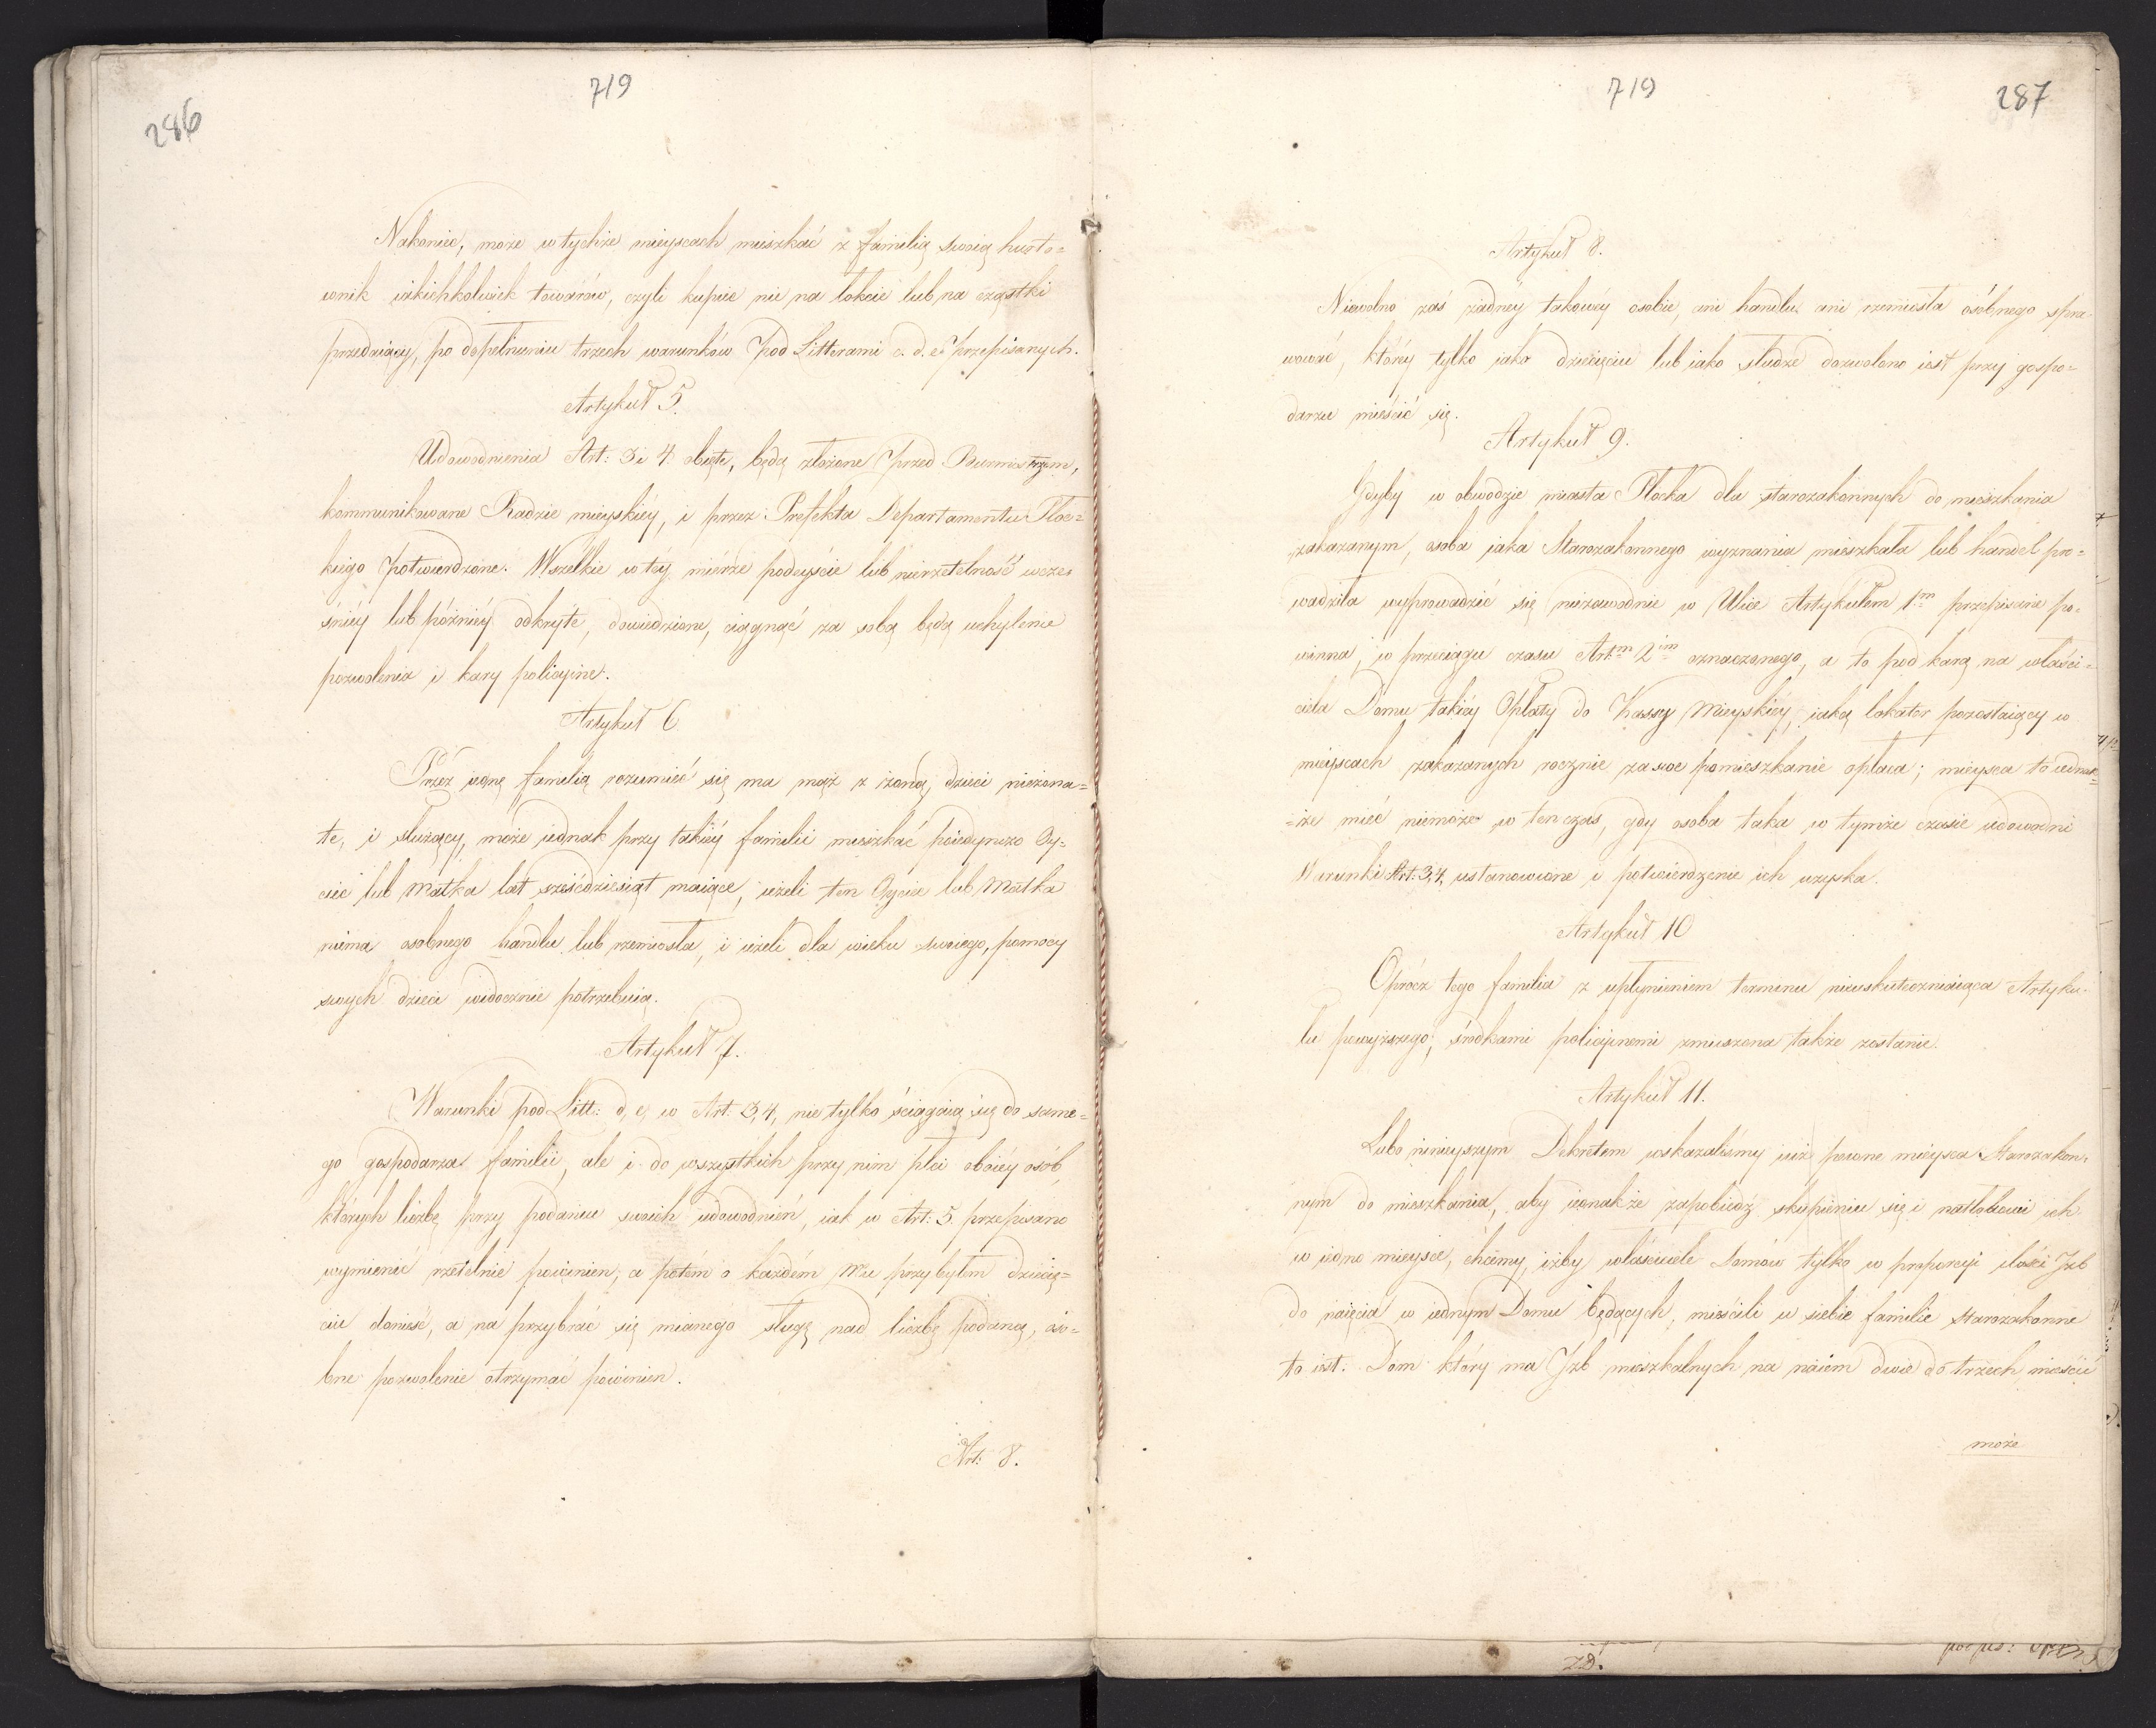 286
719
Nakoniec, może w tychże mieyscach mieszkać z familią swoią hurto=
wnik iakichkolwiek towarów, czyli kupiec nie na łokcie lub na cząstki
przedaiący, po dopełnieniu trzech warunków pod Litterami c. d. e. przepisanych.
Artykuł 5.
Udowodnienia Art: 3 i 4 obięte, będą złożone przed Burmistrzem,
kommunikowane Radzie mieyskiéy, i przez Prefekta Departamentu Płoc=
kiego potwierdzone. Wszelkie w téy mierze podeyście lub nierzetelność wcze=
śniéy lub późniéy odkryte, dowiedzione, ciągnąć za sobą będą uchylenie
pozwolenia i kary policyine.
Artykuł 6.
Przez iednę familią rozumieć się ma mąż z żoną, dzieci nieżona=
te, i służący, może iednak przy takiéy familii mieszkać poiedynczo Oy=
ciec lub Matka lat sześćdziesiąt maiące, ieżeli ten Oyciec lub Matka
niema osobnego handlu lub rzemiosła, i ieżeli dla wieku swoiego, pomocy
swych dzieci widocznie potrzebuią.
Artykuł 7.
Warunki pod Litt: d, e, w Art. 3, 4, nie tylko ściągaią się do same=
go gospodarza familii, ale i do wszystkich przy nim płci oboiéy osób,
których liczbę przy podaniu swoich udowodnień, iak w Art: 5 przepisano
wymienić rzetelnie powinien, a potém o każdém Mu przybyłem dziecię=
ciu donieść, a na przybrać się mianego sługę nad liczbę podaną, oso=
bne pozwolenie otrzymać powinien.
Art: 8.
719
287
Artykuł 8.
Niewolno zaś żadnéy takowéy osobie, ani handlu ani rzemiosła osóbnego spra=
wować, któréy tylko iako dziecięciu lub iako słudze dozwolono iest przy gospo=
darzu mieścić się.
Artykuł 9.
Gdyby w obwodzie miasta Płocka dla starozakonnych do mieszkania
zakazanym, osoba iaka Starozakonnego wyznania mieszkała lub handel pro=
wadziła wyprowadzić się niezawodnie w Ulice Artykułem 1m przepisane po=
winna, w przeciągu czasu Artm 2im oznaczonego, a to pod karą na właści=
ciela Domu takiéy Opłaty do Kassy Mieyskiéy, iaką lokator pozostaiący w
mieyscach zakazanych rocznie za swe pomieszkanie opłaca; mieysca to iednak=
=że mieć niemoże w tenczas, gdy osoba taka w tymże czasie udowodni
Warunki Art: 3, 4, ustanowione i potwierdzenie ich uzyska.
Artykuł 10
Oprócz tego familia z upłynieniem terminu nieuskuteczniaiąca Artyku=
łu powyższego, środkami policyinemi zmuszona także zostanie.
Artykuł 11.
Lubo ninieyszym Dekretem wskazaliśmy iuż pewne mieysca Starozakon=
nym do mieszkania, aby iednakże zapobiedz skupieniu się i natłokowi ich
w iedno mieysce, chcemy, iżby właściciele Domów tylko w proporcyi ilości Izb
do naięcia w iednym Domu będących, mieścili u siebie familie starozakonne
to iest: Dom który ma Izb mieszkalnych na naiem dwie do trzech mieścić
może